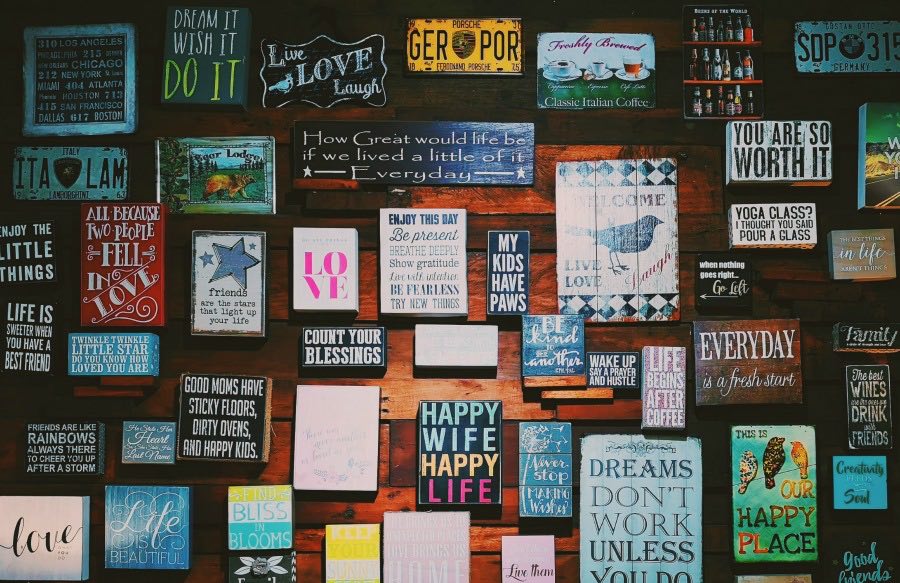 310 LOS ANGELES
PHILADELPHIA 215
DETROIT 313 CHICAGO
212 NEW YORK
MIAMI 404 ATLANTA
HOUSTON 713
415 SAN FRANCISCO
DALLAS 617 BOSTON
DREAM IT
WISH IT
DO IT
Live
LOVE
Laugh
PORSCHE
GER POR
FERDINAND PORSCHE
Freshly Brewed
Cappuccino Espresso Cafe Latte
Classic Italian Coffee
BEERS OF THE WORLD
SDP 315
GERMANY
ITALY
ITA LAM
LAMBORGHINI
How Great would life be
if we lived a little of it
Everyday
YOU ARE SO
WORTH IT
ENJOY THE
LITTLE
THINGS
ALL BECAUSE
TWO PEOPLE
FELL
IN
LOVE
friends
are the stars
that light up
your life
LO
VE
ENJOY THIS DAY
Be present
BREATHE DEEPLY
Show gratitude
Live with intention
BE FEARLESS
TRY NEW THINGS
MY
KIDS
HAVE
PAWS
WELCOME
LIVE
LOVE
Laugh
YOGA CLASS?
I THOUGHT YOU SAID
POUR A GLASS
when nothing
goes right..
Go Left
THE BEST THINGS
in life
AREN'T THINGS
LIFE IS
SWEETER WHEN
YOU HAVE A
BEST FRIEND
TWINKLE TWINKLE
LITTLE STAR
DO YOU KNOW HOW
LOVED YOU ARE
COUNT YOUR
BLESSINGS
BE
kind
to one
another
WAKE UP
SAY A PRAYER
AND HUSTLE
LIFE
BEGINS
AFTER
COFFEE
EVERYDAY
is a fresh start
Family
GOOD MOMS HAVE
STICKY FLOORS,
DIRTY OVENS,
AND HAPPY KIDS
The best
WINES
are the ones we
DRINK
with
FRIENDS
FRIENDS ARE LIKE
RAINBOWS
ALWAYS THERE
TO CHEER YOU UP
AFTER A STORM
She Stole
His Heart
So He Stole Her
Last Name
HAPPY
WIFE
HAPPY
LIFE
Never
stop
MAKING
Wishes
DREAMS
DON'T
WORK
UNLESS
YOU DO
THIS IS
OUR
HAPPY
PLACE
Creativity
Soul
love
Life
IS
BEAUTIFUL
FIND
BLISS
IN
BLOOMS
KEEP
YOUR
SUNNY
HOME
Live them
Good
friends